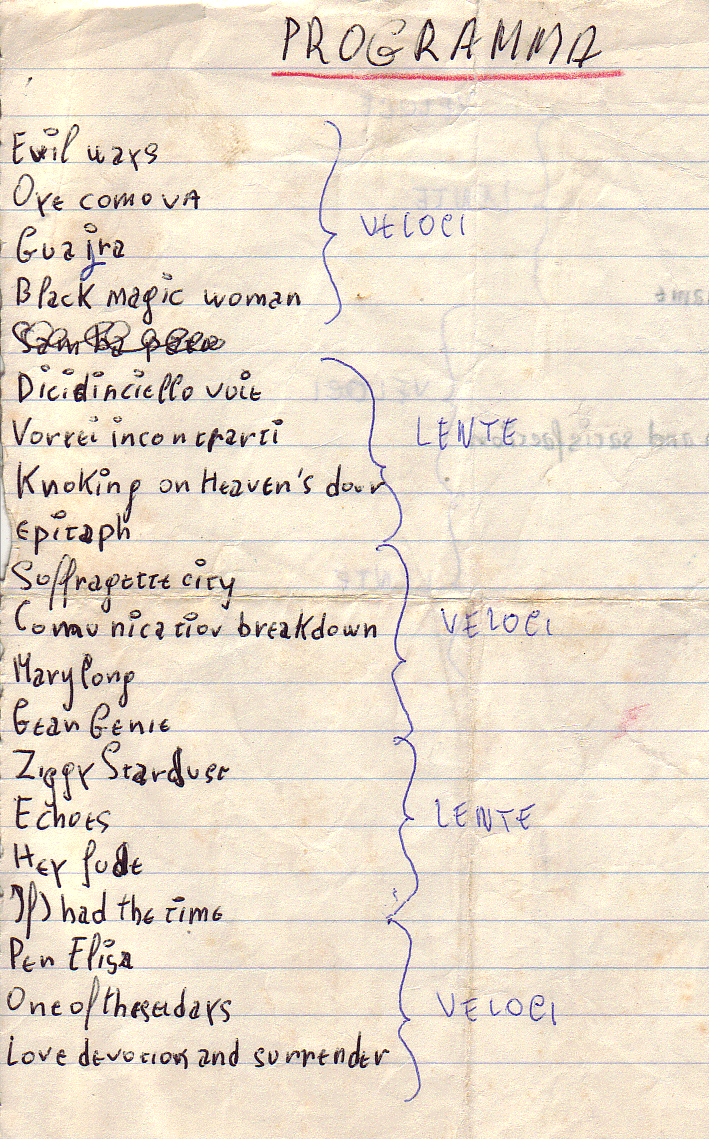 PROGRAMMA
Evil ways
Oye como va
Guajra
Black magic woman
VELOCI
Samba pa
Dicidinciello vuie
Vorrei incontrarti
Knoking on Heaven's door
Epitaph
LENTE
Suffragette city
Comunication breakdown
Mary long
Gean Genie
VELOCI
Ziggy Stardust
Echoes
Hey Jude
If I had the time
LENTE
Per Elisa
One of these days
Love devotion and surrender
VELOCI